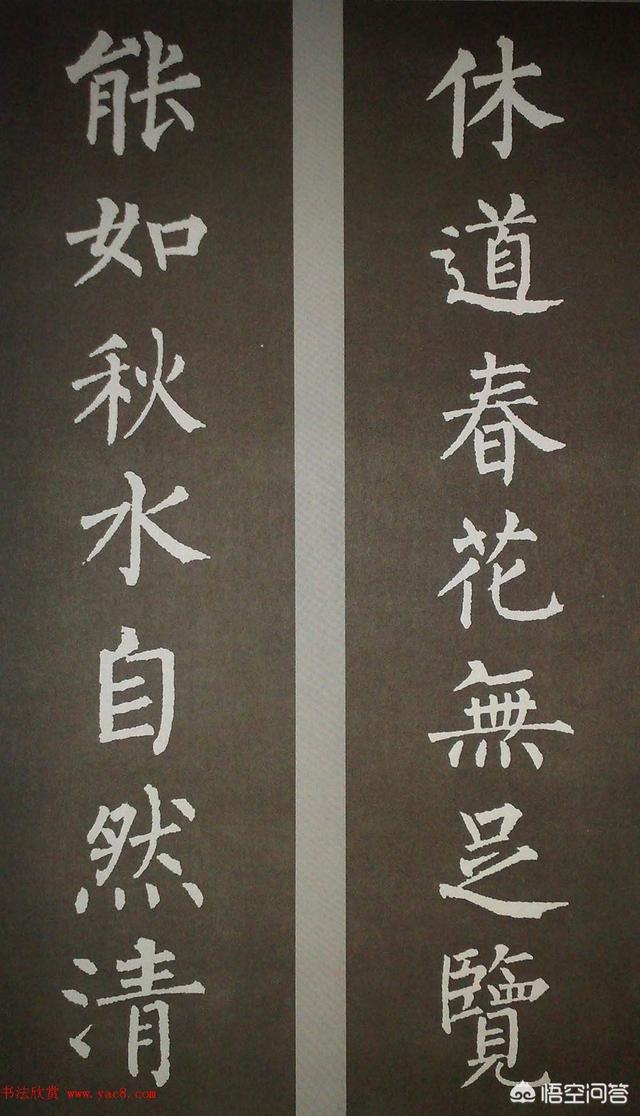 休道春花無足覽
能如秋水自然清
书法欣赏 www.yac8.com
悟空问答